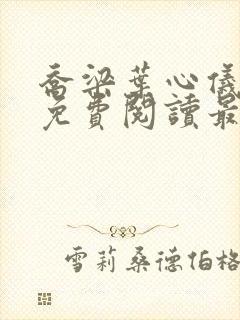 喬梁葉心儀
免費閱讀最
雪莉桑德伯格